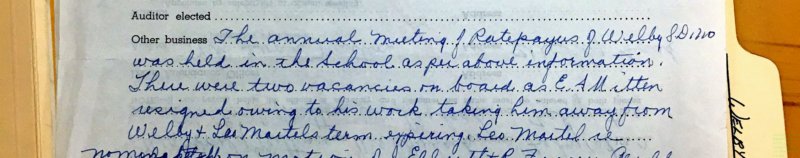 Auditor elected
Other business The annual meeting of Ratepayers of Welby S.D. 1110
was held in the School as per above information.
There were two vacancies on board as E. A. Mitten
resigned owing to his work taking him away from
Welby & Leo Martels term expiring. Leo. Martel re
on
WELBY